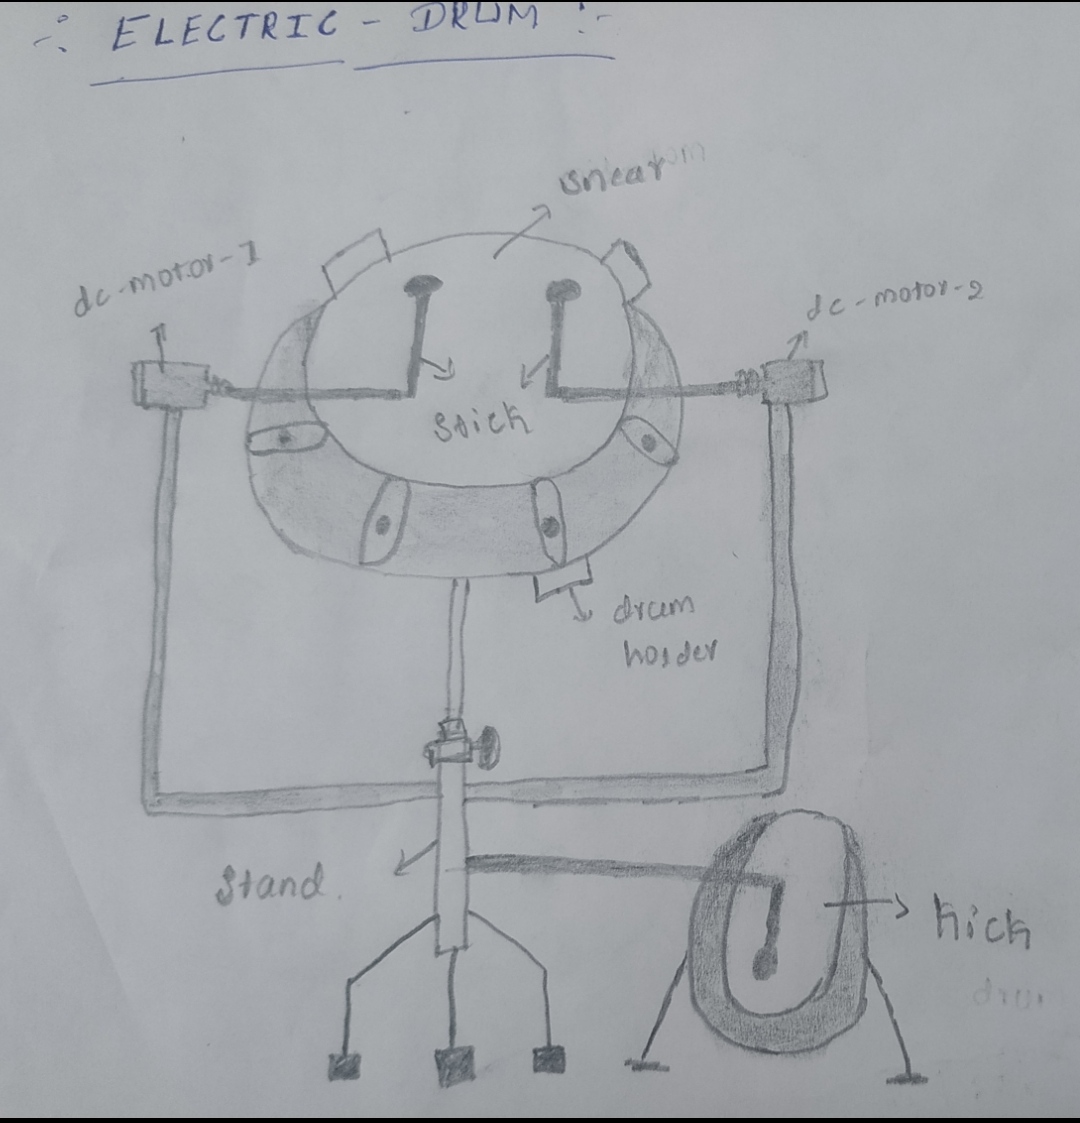 -: ELECTRIC - DRUM :-
snear
dc-motor-1
dc-motor-2
Stick
drum
holder
Stand.
kick